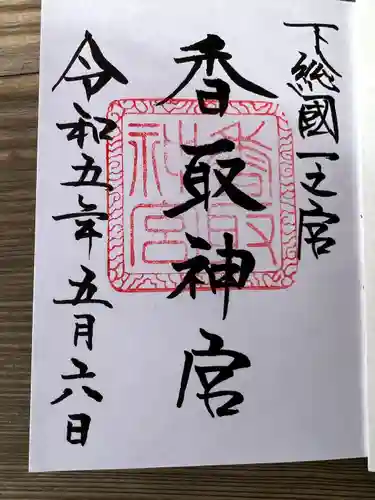 下総國一之宮
香取神宮
香取神宮
令和五年五月六日